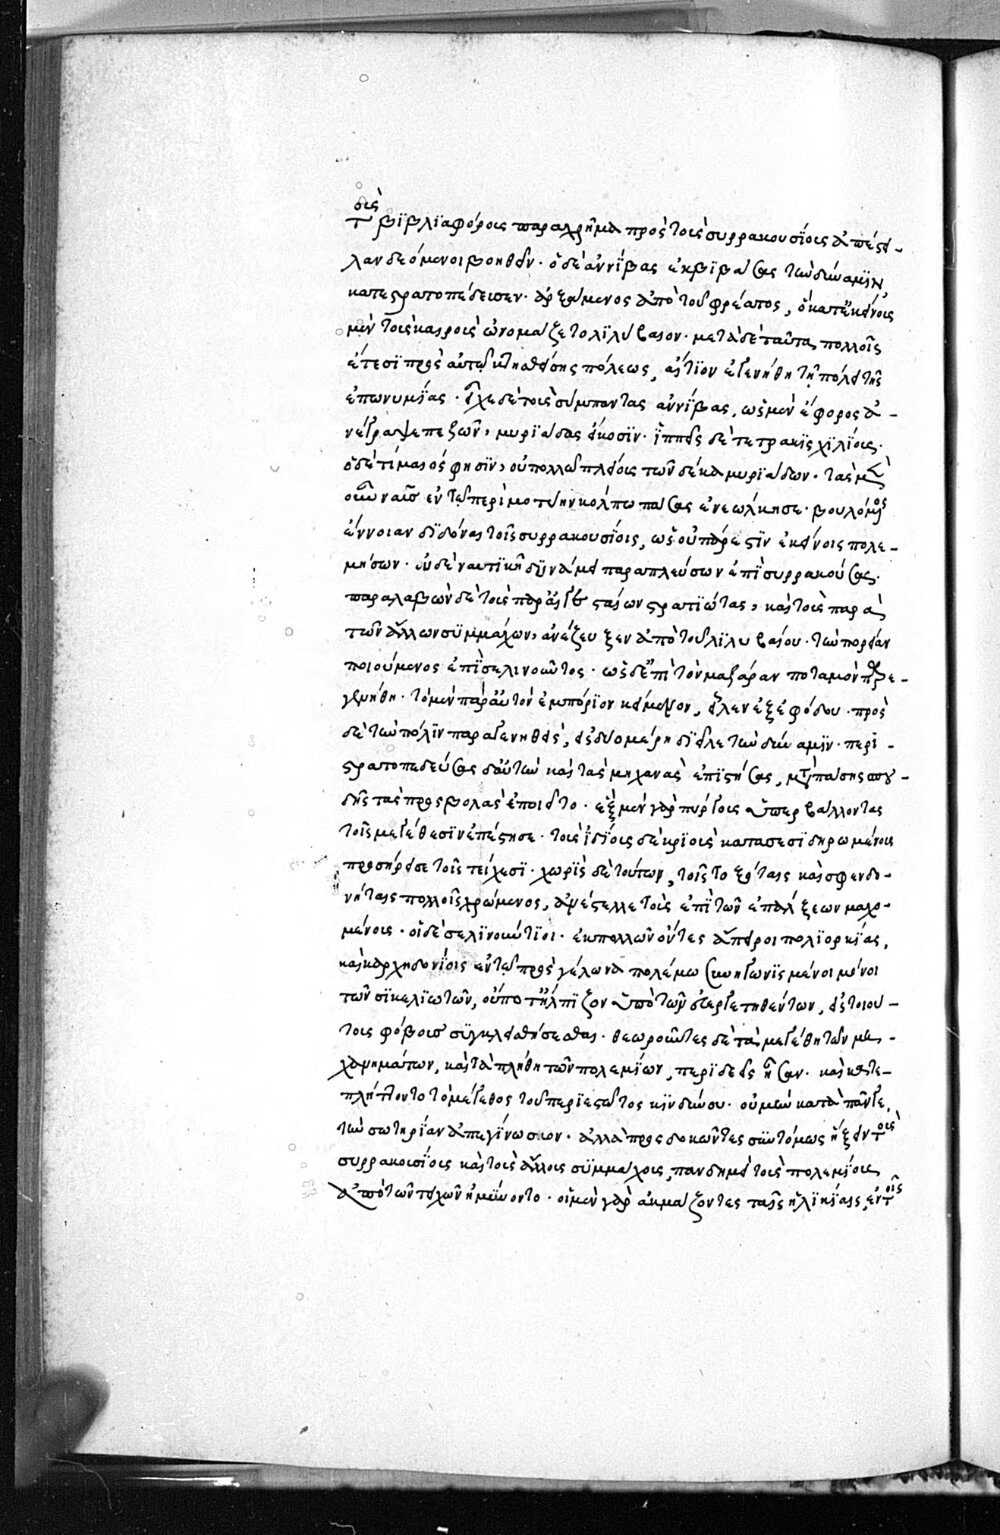 τοὺς βϊβλϊαφόρους παραχρῆμα πρὸς τοὺς συρρακουσίους ἀπέστει-
λαν δεόμενοι βοηθεῖν· ὁ δὲ ἀννίβας ἐκβϊβάσας τὴν δύναμϊν
κατεστρατοπέδευσεν· ἀρξάμενος ἀπὸ τοῦ φρέατος, ὃ κατ' ἐκείνους
μὲν τοὺς καιροὺς ὠνομάζετο λϊλύβαιον· μετὰ δὲ ταῦτα πολλοῖς
ἔτεσϊ πρὸς αὐτῶ κτηθείσης πόλεως, αἴτϊον ἐγενήθη τῆ πόλει τῆς
ἐπωνυμΐας· εἶχε δὲ τοὺς σύμπαντας ἀννίβας, ὡς μὲν ἔφορος ἀ-
νέγραψε πεζῶν, μυρϊάδας εἴκοσϊν· ἱππεῖς δὲ τετρακϊς χϊλίους·
ὁ δὲ τίμαιος φησϊν, οὐ πολλῶ πλείους τῶν δέκα μυρϊάδων· τὰς μὲν
οὖν ναῦς ἐν τῶ περὶ μοτύην κόλπω πάσας ἐνεώλκησε· βουλόμενος
ἔννοιαν δϊδόναι τοῖς συρρακουσίοις, ὡς οὐ πάρεστϊν ἐκείνοις πολε-
μήσων· οὐδὲ ναυτϊκῆ δυνάμει παραπλεύσων ἐπὶ συρρακούσας·
παραλαβὼν δὲ τοὺς παρ' αἰγεσταίων στρατϊώτας, καὶ τοὺς παρὰ
τῶν ἄλλων συμμάχων, ἀνέζευξεν ἀπὸ τοῦ λϊλυβαίου· τὴν πορείαν
ποιούμενος ἐπὶ σελινοῦντος· ὡς δ' ἐπὶ τὸν μαζάραν ποταμὸν παρε-
γενήθη· τὸ μὲν παρ' αὐτὸν ἐμπόρϊον κείμενον, εἷλεν ἐξ ἐφόδου· πρὸς
δὲ τὴν πόλϊν παραγενηθεὶς, εἰς δύο μέρη δϊεῖλε τὴν δύναμϊν· περϊ-
στρατοπεδεύσας δ' αὐτὴν καὶ τὰς μηχανὰς ἐπϊστήσας, μετὰ πάσης σπου-
δῆς τὰς προσβολὰς ἐποιεῖτο· ἓξ μὲν γὰρ πύργους ὑπερβάλλοντας
τοῖς μεγέθεσϊν ἐπέστησε· τοὺς ἴσους δὲ κρϊοὺς κατασεσϊδηρωμένους
προσήρεισε τοῖς τείχεσϊ· χωρὶς δὲ τούτων, τοῖς τοξόταις καὶ σφενδο-
νήταις πολλοῖς χρώμενος, ἀνέστελλε τοὺς ἐπὶ τῶν ἐπάλξεων μαχο-
μένους· οἱ δὲ σελϊνούντϊοι· ἐκ πολλῶν ὄντες ἄπειροι πολϊορκΐας,
καὶ καρχηδονίοις ἐν τῶ πρὸς γέλωνα πολέμω συνηγωνϊσμένοι μόνοι
τῶν σϊκελϊωτῶν, οὔποτ' ἤλπϊζον ὑπὸ τῶν εὐεργετηθέντων, εἰς τοιού-
τους φόβους συγκλεισθήσεσθαι· θεωροῦντες δὲ τὰ μεγέθη τῶν μη-
χανημάτων, καὶ τὰ πλήθη τῶν πολεμΐων, περϊδεεῖς ἦσαν· καὶ κατε-
πλήττοντο τὸ μέγεθος τοῦ περϊεστῶτος κϊνδύνου· οὐ μὴν κατὰ πᾶν γε,
τὴν σωτηρίαν ἀπεγίνωσκον· ἀλλὰ προσδοκῶντες συντόμως ἥξειν τοὺς
συρρακουσΐους καὶ τοὺς ἄλλους συμμάχους, πανδημεὶ τοὺς πολεμΐους
ἀπὸ τῶν τειχῶν ἠμύνοντο· οἱ μὲν γὰρ ἀκμάζοντες ταῖς ἡλϊκΐαις, ἐν τοῖς